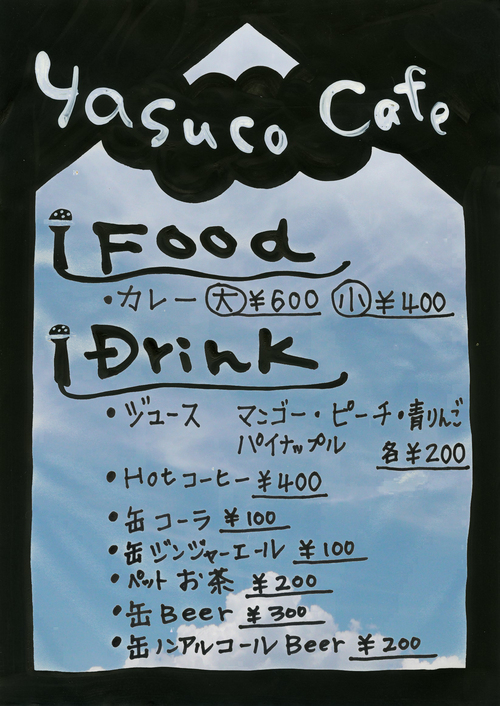 Yasuco Cafe
Food
・カレー ㊤大 ¥600 小 ¥400
Drink
・ジュース マンゴー・ピーチ・青りんご
パイナップル 各¥200
・Hotコーヒー ¥400
・缶コーラ ¥100
・缶ジンジャーエール ¥100
・ペットお茶 ¥200
・缶Beer ¥300
・缶ノンアルコールBeer ¥200